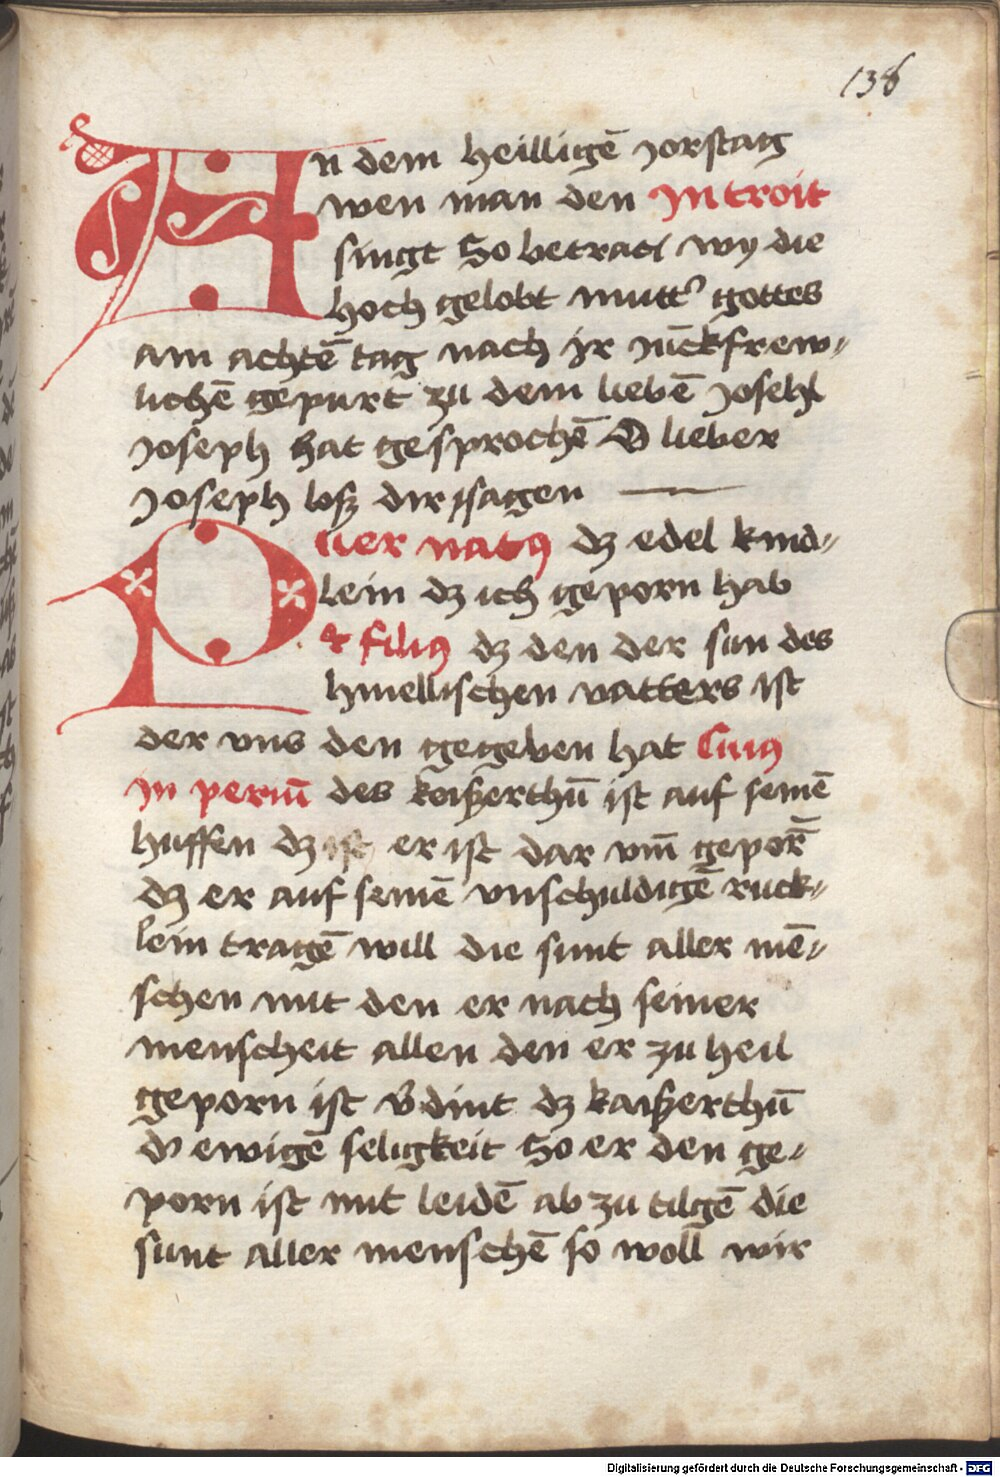 138
An dem heilligē Jorstag
wen man den Introit
singt So betracht wy die
hoch gelobt mutt' gottes
am achtē tag nach jr Jūckfrew-
lichē gepurt zu dem liebē
Joseph hat gesprochē O lieber
Joseph loß dir sagen
Puer natus dz edel kind-
lein dz ich geporn hab
et filius dz den der sun des
himellischen vatters ist
der vns den gegeben hat Cuius
in periū des koißerthū ist auf seinē
huffen dz ist er ist dar vm̄ geporn̄
dz er auf seinē vnschuldigē ruck-
lein tragē will die sunt aller mē-
schen mit den er nach seiner
menscheit allen den er zu heil
geporn ist v̄dint dz kaißerthū
d' ewigē seligkeit So er den ge-
porn ist mit leidē ab zu tilgē die
sunt aller menschē so woll wir
Digitalisierung gefördert durch die Deutsche Forschungsgemeinschaft - DFG